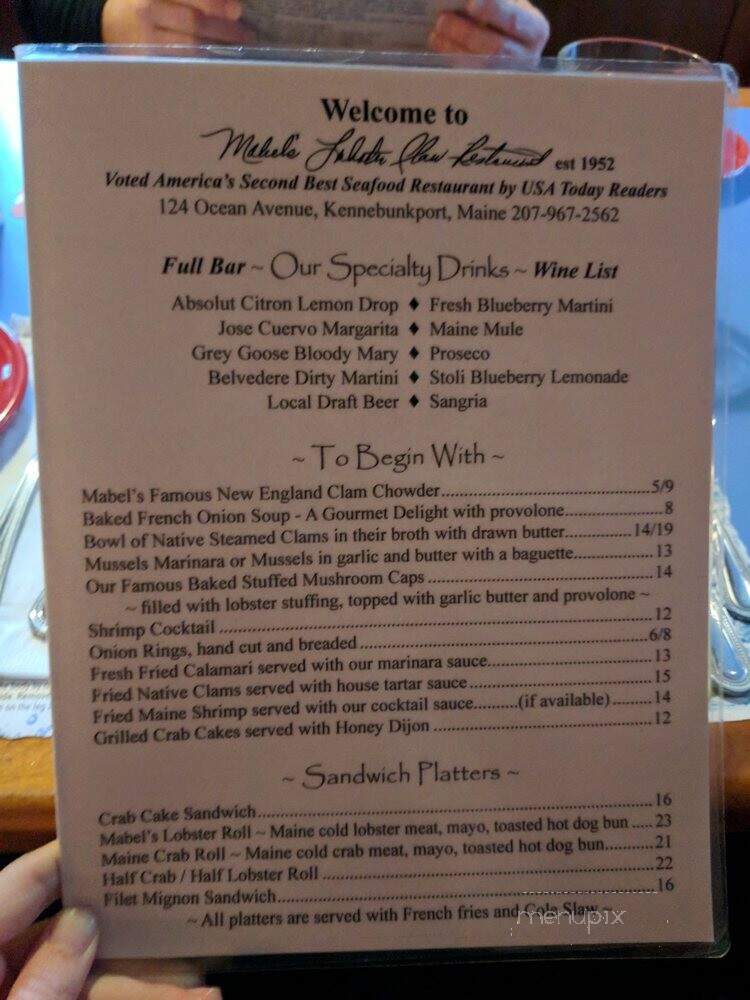 Welcome to
Mabel's Lobster Claw Restaurant est 1952
Voted America's Second Best Seafood Restaurant by USA Today Readers
124 Ocean Avenue, Kennebunkport, Maine 207-967-2562
Full Bar ~ Our Specialty Drinks ~ Wine List
Absolut Citron Lemon Drop ♦ Fresh Blueberry Martini
Jose Cuervo Margarita ♦ Maine Mule
Grey Goose Bloody Mary ♦ Proseco
Belvedere Dirty Martini ♦ Stoli Blueberry Lemonade
Local Draft Beer ♦ Sangria
~ To Begin With ~
Mabel's Famous New England Clam Chowder...5/9
Baked French Onion Soup - A Gourmet Delight with provolone...8
Bowl of Native Steamed Clams in their broth with drawn butter...14/19
Mussels Marinara or Mussels in garlic and butter with a baguette...13
Our Famous Baked Stuffed Mushroom Caps...14
~ filled with lobster stuffing, topped with garlic butter and provolone ~
Shrimp Cocktail...12
Onion Rings, hand cut and breaded...6/8
Fresh Fried Calamari served with our marinara sauce...13
Fried Native Clams served with house tartar sauce...15
Fried Maine Shrimp served with our cocktail sauce...(if available)...14
Grilled Crab Cakes served with Honey Dijon...12
~ Sandwich Platters ~
Crab Cake Sandwich...16
Mabel's Lobster Roll ~ Maine cold lobster meat, mayo, toasted hot dog bun...23
Maine Crab Roll ~ Maine cold crab meat, mayo, toasted hot dog bun...21
Half Crab / Half Lobster Roll...22
Filet Mignon Sandwich...16
~ All platters are served with French fries and Cole Slaw ~
menupix